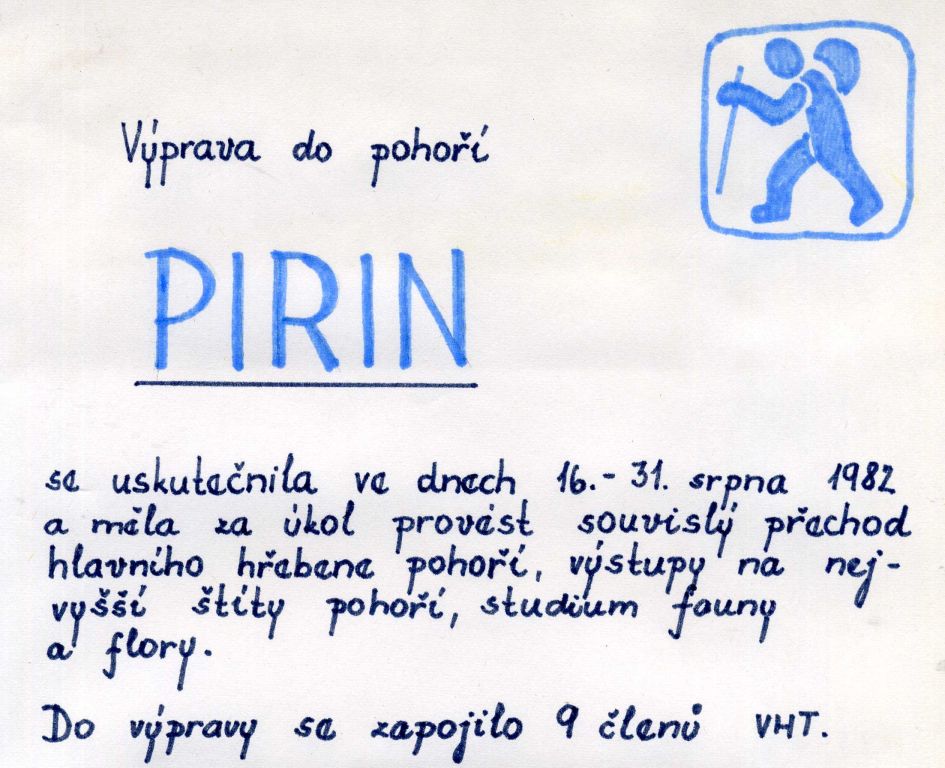 Výprava do pohoří
PIRIN
se uskutečnila ve dnech 16.-31. srpna 1982
a měla za úkol provést souvislý přechod
hlavního hřebene pohoří, výstupy na nej-
vyšší štíty pohoří, studium fauny
a flory.
Do výpravy se zapojilo 9 členů VHT.